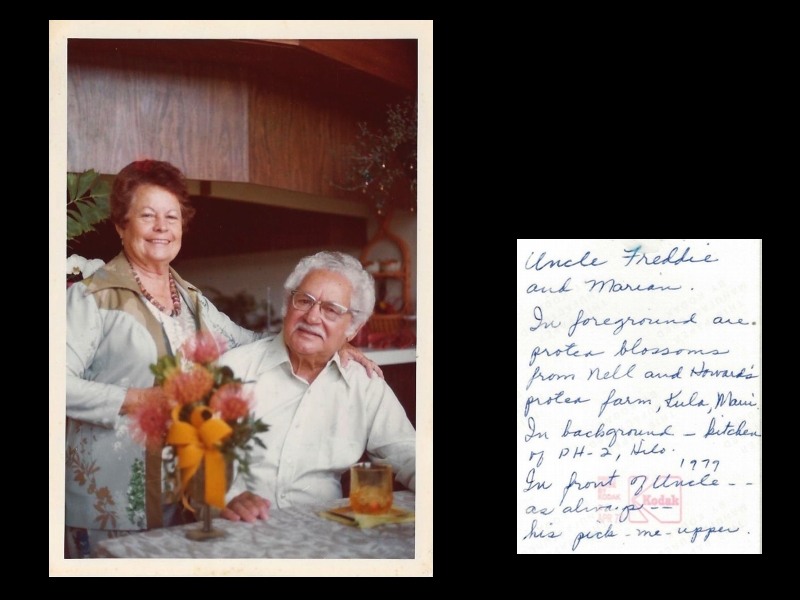 Uncle Freddie
and Marian.
In foreground are
protea blossoms
from Nell and Howard's
protea farm, Kula, Maui.
In background - kitchen
of PH-2, Hilo.
1979
In front of Uncle --
as always --
his pick-me-upper.
Kodak